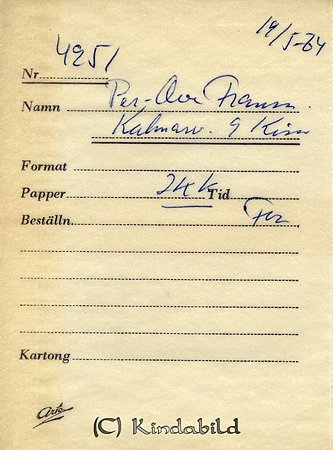 19/5-64
Nr 4951
Namn Per-Ove Franzn.
Kalmarv. 9 Kisa
Format
Papper 24k Tid
Beställn.
Kartong
Ark
(C) Kindabild